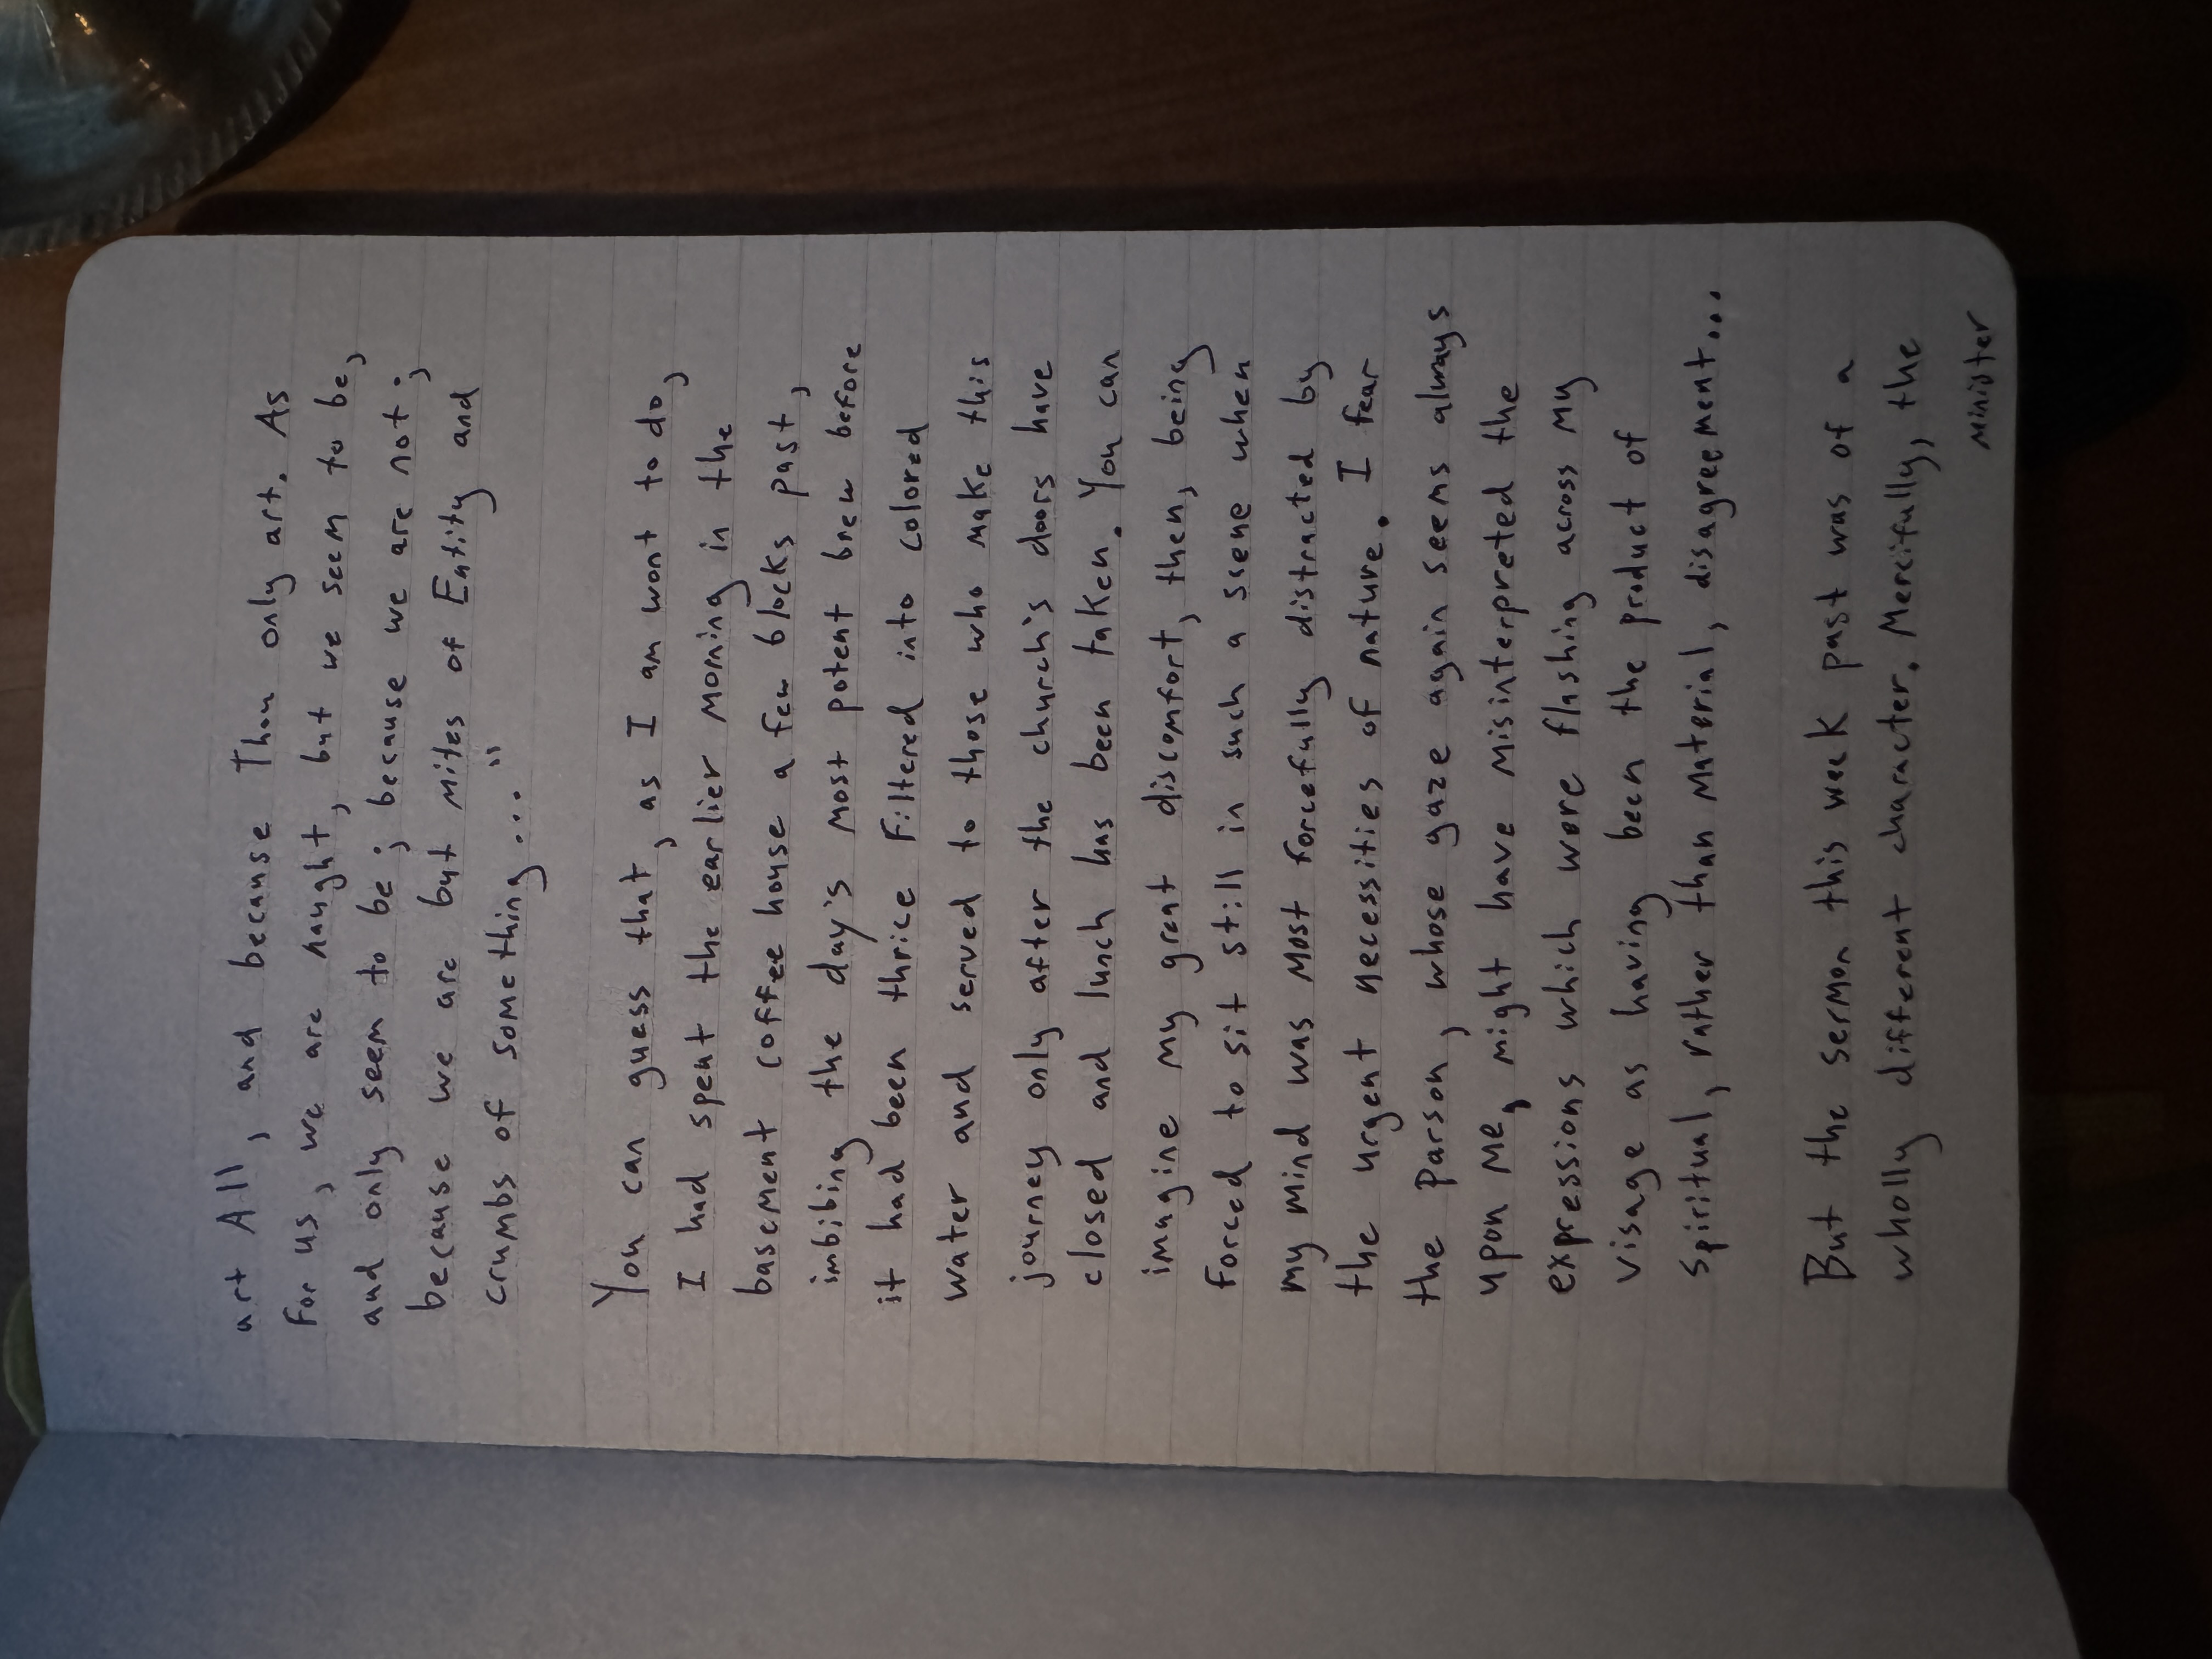 art All, and because Thou only art. As
for us, we are naught, but we seem to be,
and only seem to be; because we are not;
because we are but mites of Entity and
crumbs of something..."
You can guess that, as I am wont to do,
I had spent the earlier morning in the
basement coffee house a few blocks past,
imbibing the day's most potent brew before
it had been thrice filtered into colored
water and served to those who make this
journey only after the church's doors have
closed and lunch has been taken. You can
imagine my great discomfort, then, being
forced to sit still in such a scene when
my mind was most forcefully distracted by
the urgent necessities of nature. I fear
the Parson, whose gaze again seems always
upon me, might have misinterpreted the
expressions which were flashing across my
visage as having been the product of
spiritual, rather than material, disagreement...
But the sermon this week past was of a
wholly different character. Mercifully, the
minister